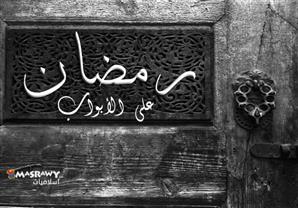 رمضان
على الأبواب
MASRAWY
إسلاميات